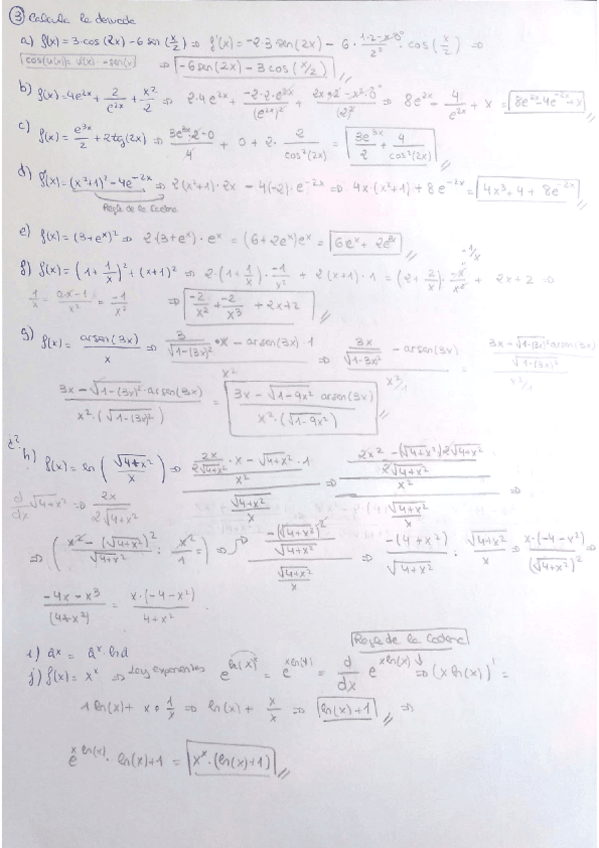 ③ Calcula la derivada
a) f(x) = 3·cos(2x) - 6 sen(x/2) ⇒ f'(x) = -2·3 sen(2x) - 6 · (1·2 - x·0)/2² · cos(x/2) ⇒
cos(u(x)) = u'(x) · -sen(x) ⇒ -6 sen(2x) - 3 cos(x/2)
b) f(x) = 4e^2x + 2/e^2x + x²/2 ⇒ 2·4e^2x + (-2·2·e^2x)/(e^2x)² + (2x·2 - x²·0)/(2)² ⇒ 8e^2x - 4/e^2x + x = 8e^2x - 4e^-2x + x
c) f(x) = e^3x/2 + 2tg(2x) ⇒ (3e^3x·2-0)/4 + 0 + 2· 2/cos²(2x) = 3e^3x/2 + 4/cos²(2x)
d) f(x) = (x²+1)² - 4e^-2x ⇒ 2(x²+1)·2x - 4(-2)·e^-2x ⇒ 4x·(x²+1) + 8e^-2x = 4x³ + 4 + 8e^-2x
Regla de la Cadena
e) f(x) = (3+e^x)² ⇒ 2(3+e^x)·e^x = (6+2e^x)e^x = 6e^x + 2e^2x
f) f(x) = (1 + 1/x)² + (x+1)² ⇒ 2·(1 + 1/x) · -1/x² + 2(x+1)·1 = (2 + 2/x) · + 2x+2 ⇒
1/x = (0·x-1)/x² = -1/x² ⇒ -2/x² + -2/x³ + 2x+2
g) f(x) = arsen(3x)/x ⇒ (3/√(1-(3x)²) · x - arsen(3x)·1)/x² ⇒ (3x/√(1-3x²) - arsen(3x))/(x²/1) (3x - √(1-(3x)²) arsen(3x))/√(1-(3x)²) / (x²/1)
(3x - √(1-(3x)²)·arsen(3x))/(x²·(√(1-(3x)²)) = (3x - √(1-9x²) arsen(3x))/(x²·(√(1-9x²))
¿? h) f(x) = ln(√(4+x²)/x) ⇒ (2x/(2√(4+x²)) · x - √(4+x²)·1)/x² / (√(4+x²)/x) ⇒ (2x² - (√(4+x²))2√(4+x²))/(2√(4+x²)) / x² / (√(4+x²)/x) ⇒
d/dx √(4+x²) ⇒ 2x/(2√(4+x²))
⇒ ((x² - (√(4+x²))²)/√(4+x²) : x²/1 =) ⇒ (-(√(4+x²))²/√(4+x²)) / (√(4+x²)/x) ⇒ -(4+x²)/√(4+x²) : √(4+x²)/x ⇒ x·(-4-x²)/(√(4+x²))² ⇒
(-4x-x³)/(4+x²) = x·(-4-x²)/(4+x²)
Regla de la Cadena
i) a^x = a^x·ln a
j) f(x) = x^x ⇒ Ley exponentes e^ln(x)^x = e^xln(x) = d/dx e^xln(x) ⇒ (x ln(x))' =
1 ln(x) + x · 1/x ⇒ ln(x) + x/x ⇒ ln(x)+1 ⇒
e^x ln(x) · ln(x)+1 = x^x·(ln(x)+1)